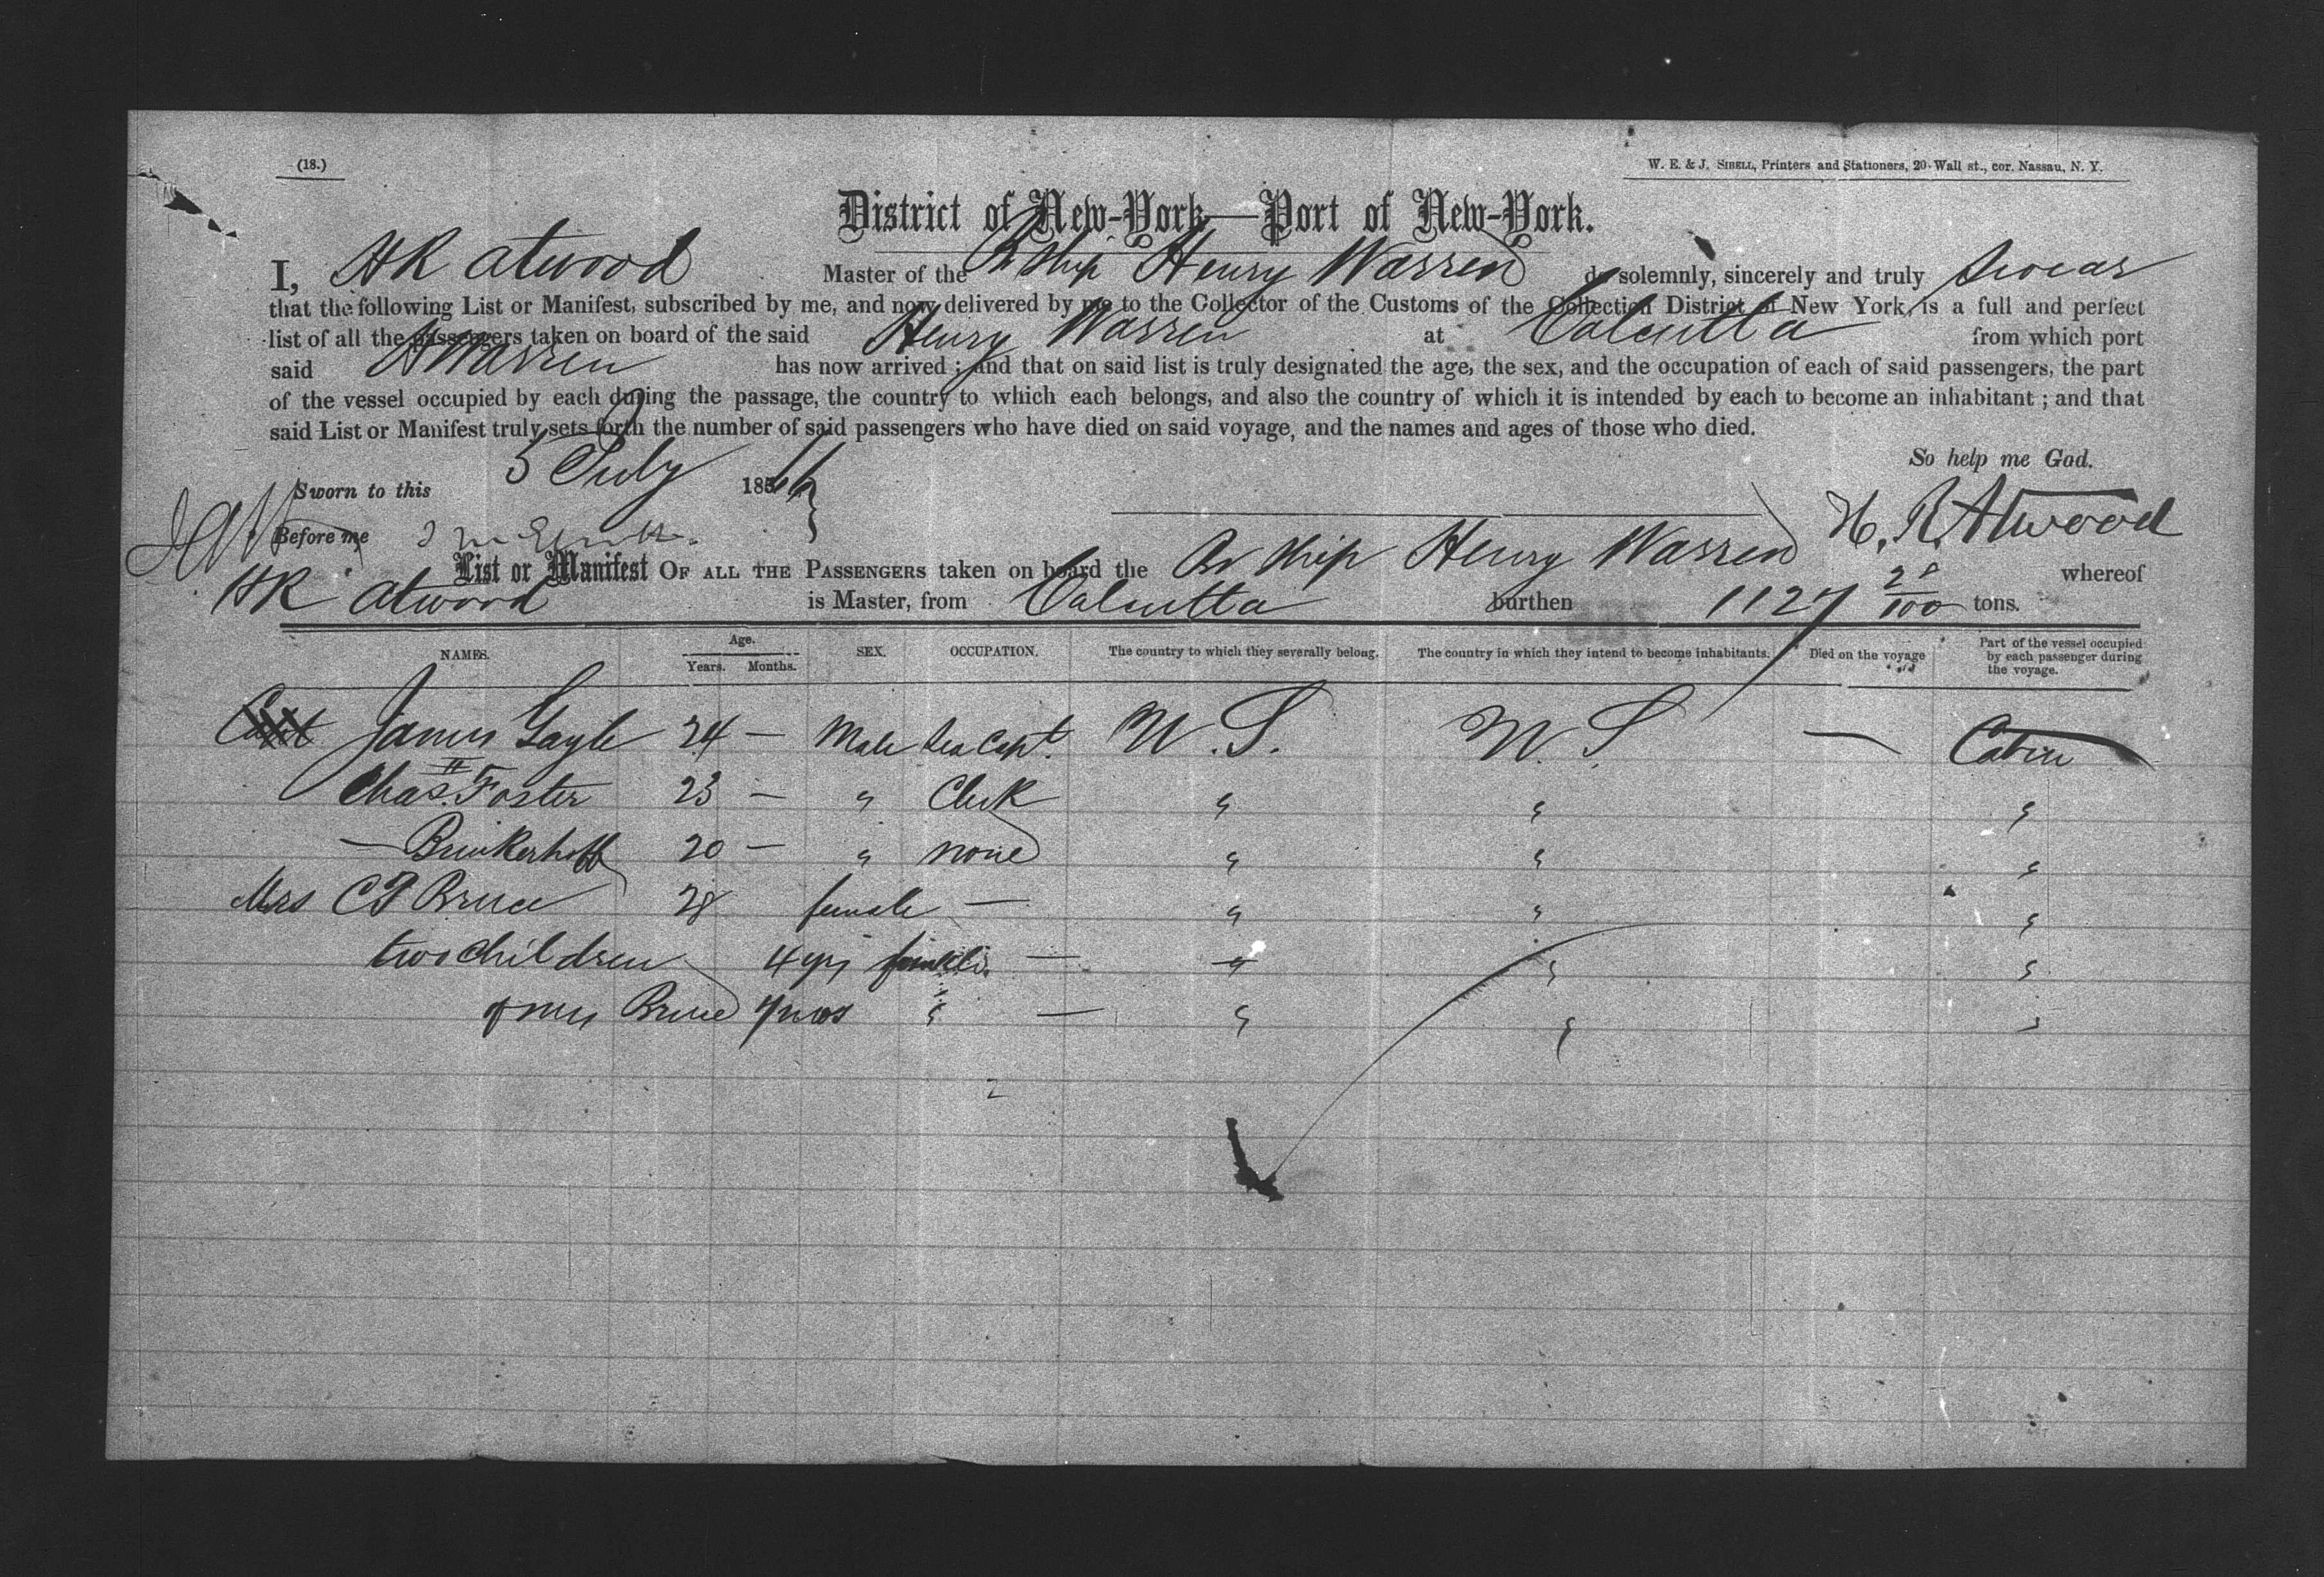 (18.)
W. E. & J. SIBELL, Printers and Stationers, 20 Wall st., cor. Nassau, N. Y.
District of New-York—Port of New-York.
I, HR Atwood Master of the Br Ship Henry Warren do solemnly, sincerely and truly swear
that the following List or Manifest, subscribed by me, and now delivered by me to the Collector of the Customs of the Collection District of New York, is a full and perfect
list of all the passengers taken on board of the said Henry Warren at Calcutta from which port
said HWarren has now arrived; and that on said list is truly designated the age, the sex, and the occupation of each of said passengers, the part
of the vessel occupied by each during the passage, the country to which each belongs, and also the country of which it is intended by each to become an inhabitant; and that
said List or Manifest truly sets forth the number of said passengers who have died on said voyage, and the names and ages of those who died.
So help me God.
Sworn to this 5 July 1866
H. R. Atwood
Before me
List or Manifest OF ALL THE PASSENGERS taken on board the Br Ship Henry Warren whereof
HR Atwood is Master, from Calcutta burthen 1127 28/100 tons.
NAMES. Age. Years. Months. SEX. OCCUPATION. The country to which they severally belong. The country in which they intend to become inhabitants. Died on the voyage Part of the vessel occupied by each passenger during the voyage.
James Gayle 24 — Male Sea Capt. U.S. U.S — Cabin
Chas. H Foster 23 — " Clerk " " "
— Brinkerhoff 20 — " none " " "
Mrs C T Bruce 28 female — " " "
two children 4 yrs female — " " "
of Mrs Bruce 7 mos " — " " "